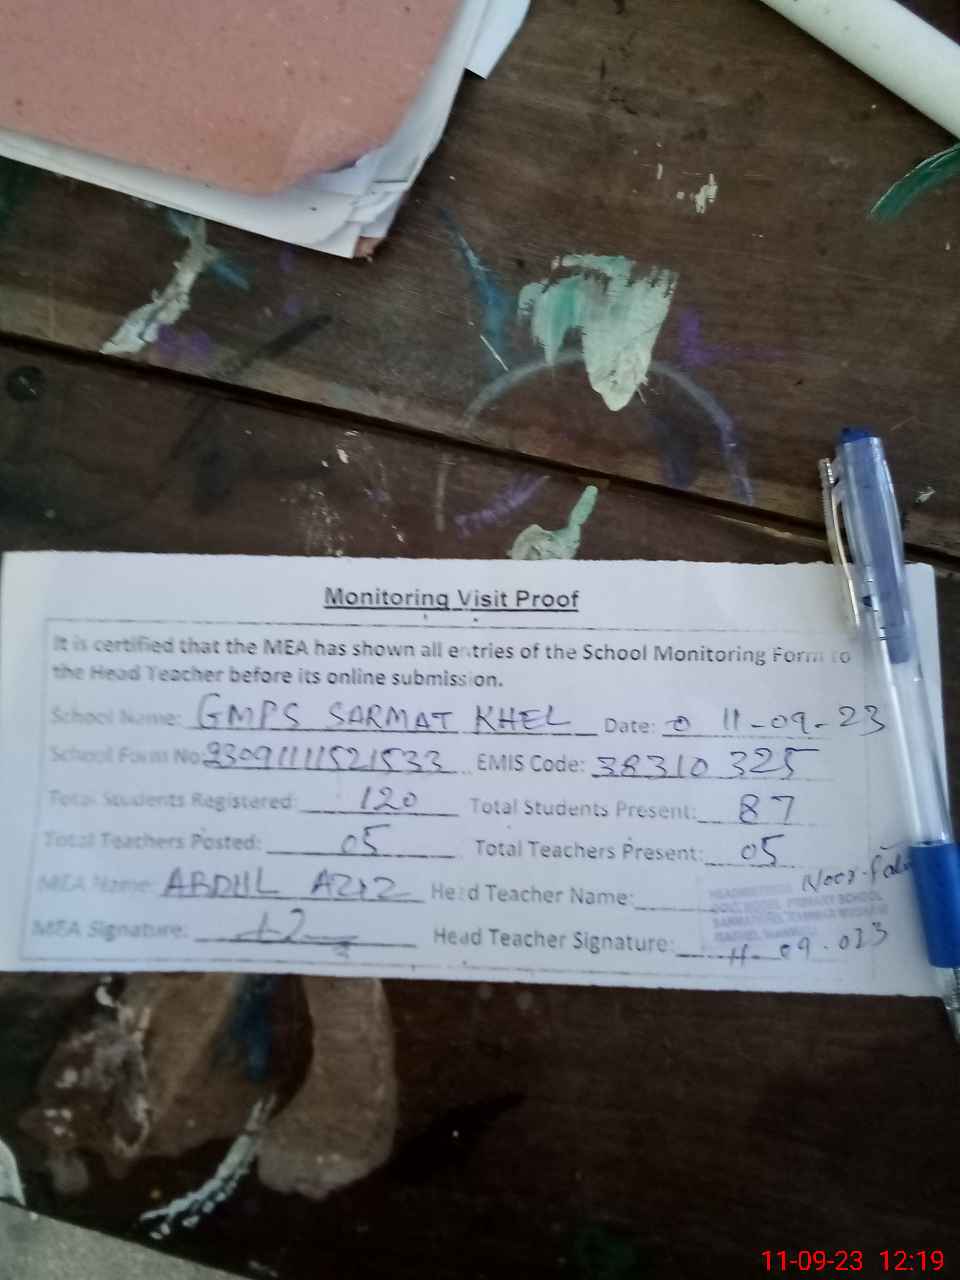 Monitoring Visit Proof
It is certified that the MEA has shown all entries of the School Monitoring Form to
the Head Teacher before its online submission.
School Name: GMPS SARMAT KHEL Date: 11-09-23
School Form No: 23091111521533 EMIS Code: 38310325
Total Students Registered: 120 Total Students Present: 87
Total Teachers Posted: 05 Total Teachers Present: 05
MEA Name: ABDUL AZIZ Head Teacher Name:
PRIMARY SCHOOL
MEA Signature: Head Teacher Signature:
11-09-23 12:19